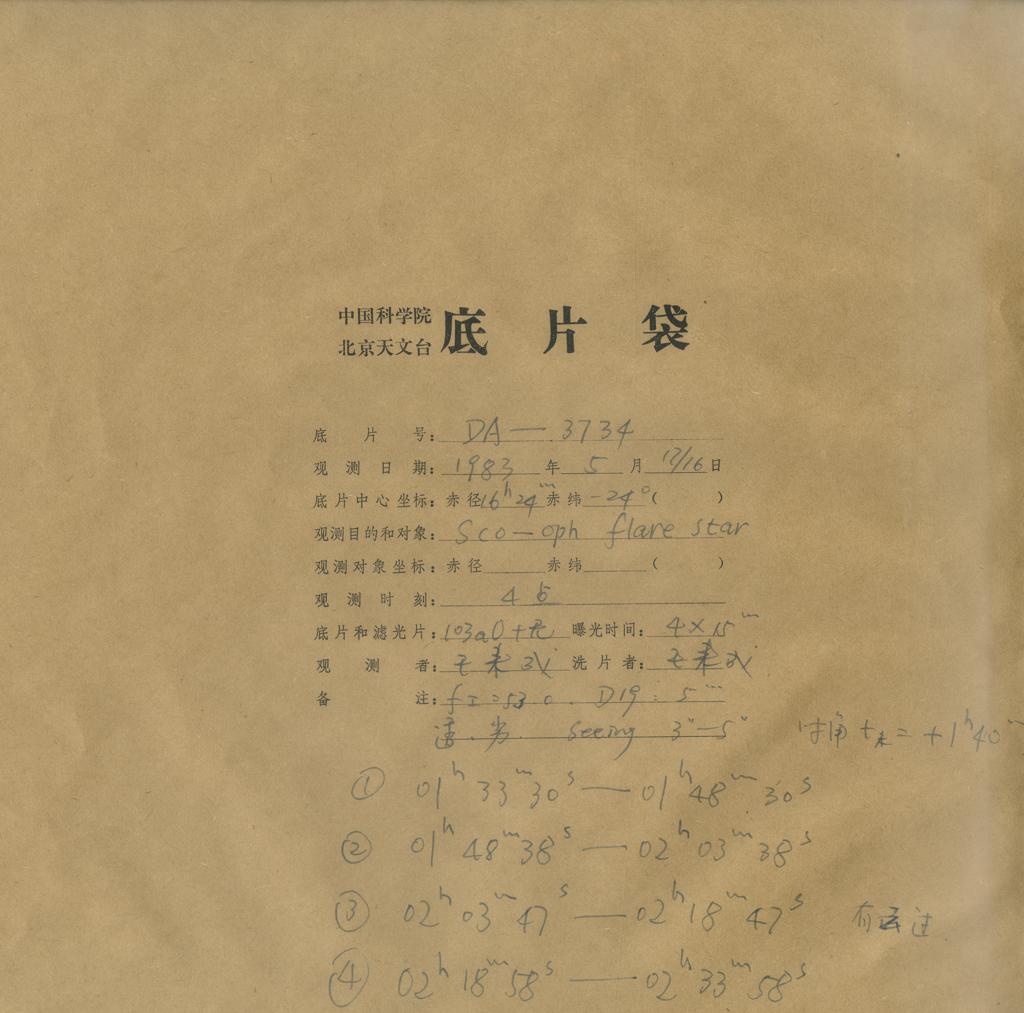 中国科学院
北京天文台 底片袋
底片号: DA—3734
观测日期: 1983 年 5 月 17/16 日
底片中心坐标: 赤径 16ʰ24ᵐ 赤纬 -24° ( )
观测目的和对象: Sco—oph flare star
观测对象坐标: 赤径 赤纬 ( )
观测时刻: 4
底片和滤光片: 103aO+无 曝光时间: 4×15ᵐ
观测者: 王 洗片者: 王
备注: D19: 5ᵐ
Seeing 3"—5" 时角 t末=+1ʰ40ᵐ
① 01ʰ33ᵐ30ˢ—01ʰ48ᵐ30ˢ
② 01ʰ48ᵐ38ˢ—02ʰ03ᵐ38ˢ
③ 02ʰ03ᵐ47ˢ—02ʰ18ᵐ47ˢ 有云过
④ 02ʰ18ᵐ58ˢ—02ʰ33ᵐ58ˢ